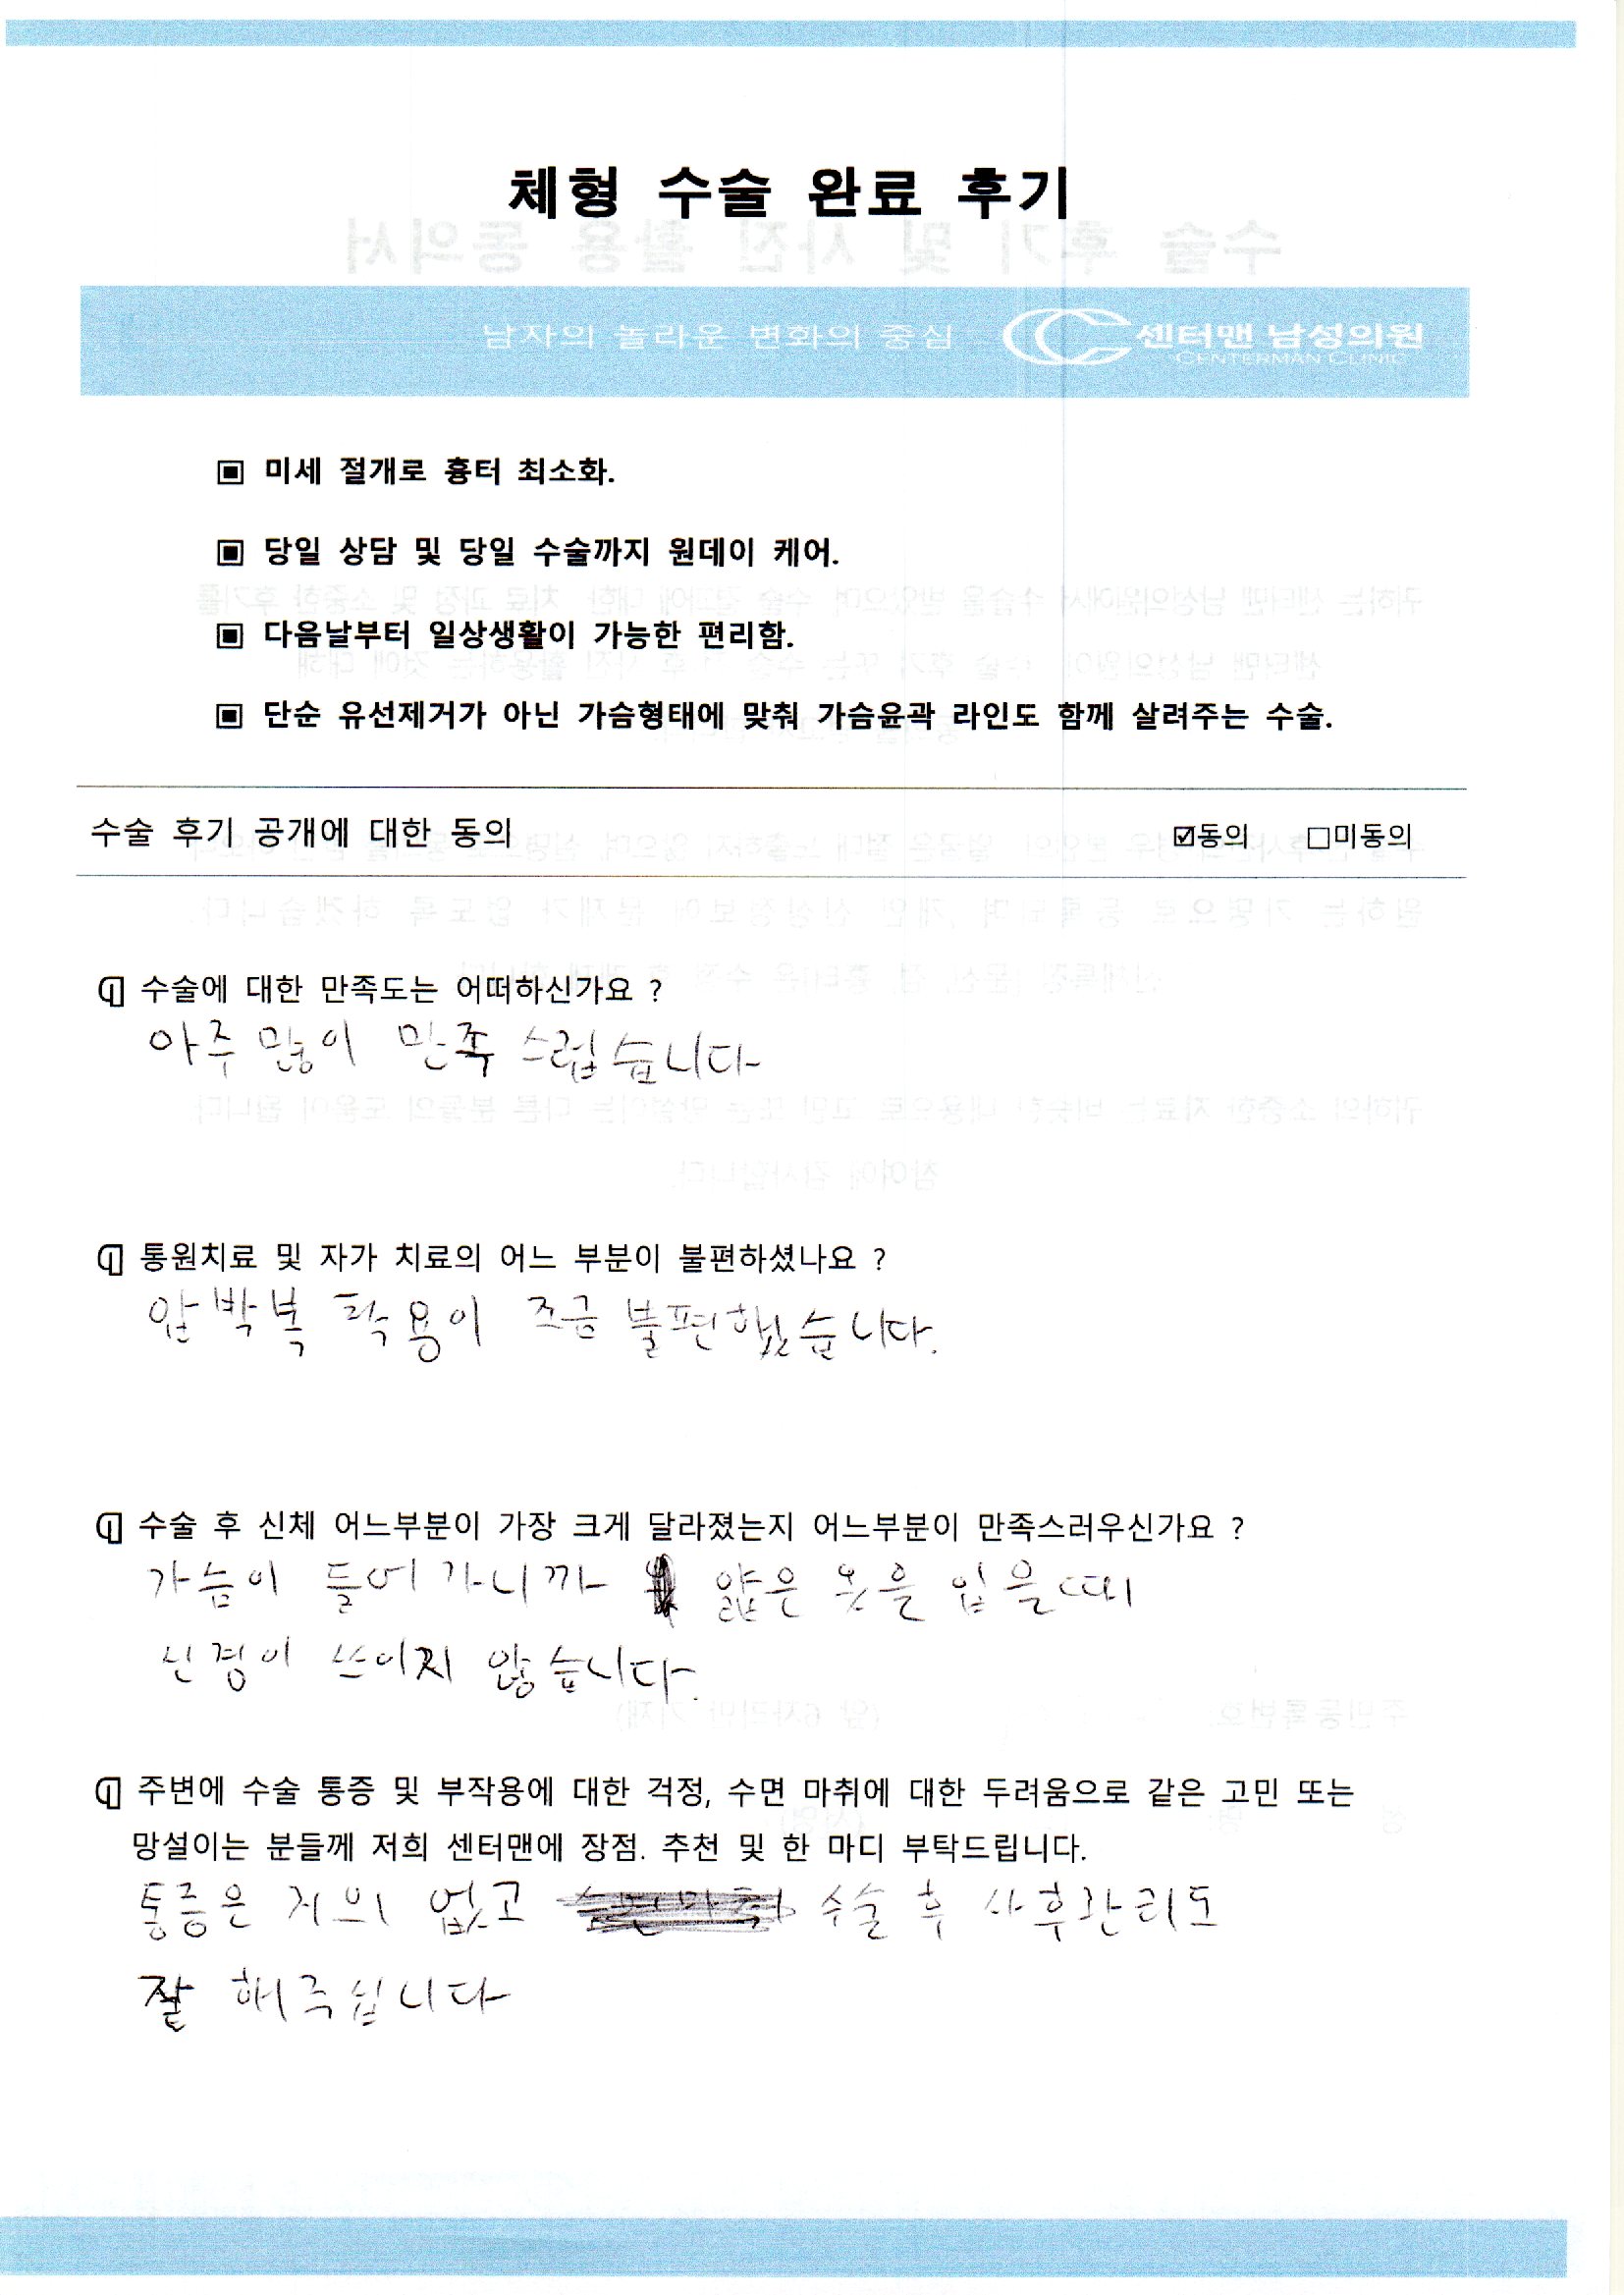 체형 수술 완료 후기
남자의 놀라운 변화의 중심 센터맨 남성의원
CENTERMAN CLINIC
▣ 미세 절개로 흉터 최소화.
▣ 당일 상담 및 당일 수술까지 원데이 케어.
▣ 다음날부터 일상생활이 가능한 편리함.
▣ 단순 유선제거가 아닌 가슴형태에 맞춰 가슴윤곽 라인도 함께 살려주는 수술.
수술 후기 공개에 대한 동의 ☑동의 □미동의
수술에 대한 만족도는 어떠하신가요 ?
아주 많이 만족스럽습니다
통원치료 및 자가 치료의 어느 부분이 불편하셨나요 ?
압박복 착용이 조금 불편했습니다.
수술 후 신체 어느부분이 가장 크게 달라졌는지 어느부분이 만족스러우신가요 ?
가슴이 들어가니까 얇은 옷을 입을때
신경이 쓰이지 않습니다.
주변에 수술 통증 및 부작용에 대한 걱정, 수면 마취에 대한 두려움으로 같은 고민 또는
망설이는 분들께 저희 센터맨에 장점. 추천 및 한 마디 부탁드립니다.
통증은 거의 없고 수술 후 사후관리도
잘 해주십니다